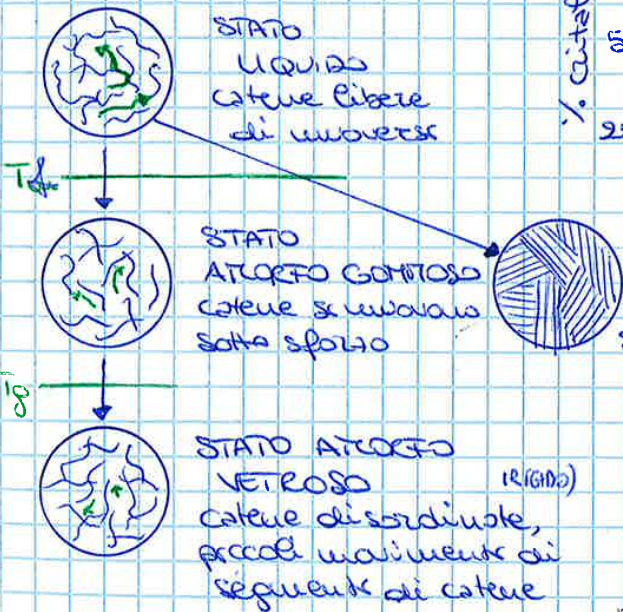 STATO
LIQUIDO
catene libere
di muoversi
% Cristal
Tf
STATO
AMORFO GOMMOSO
catene si muovono
sotto sforzo
Tg
STATO AMORFO
VETROSO (RIGIDO)
catene disordinate,
piccoli movimenti di
segmenti di catene